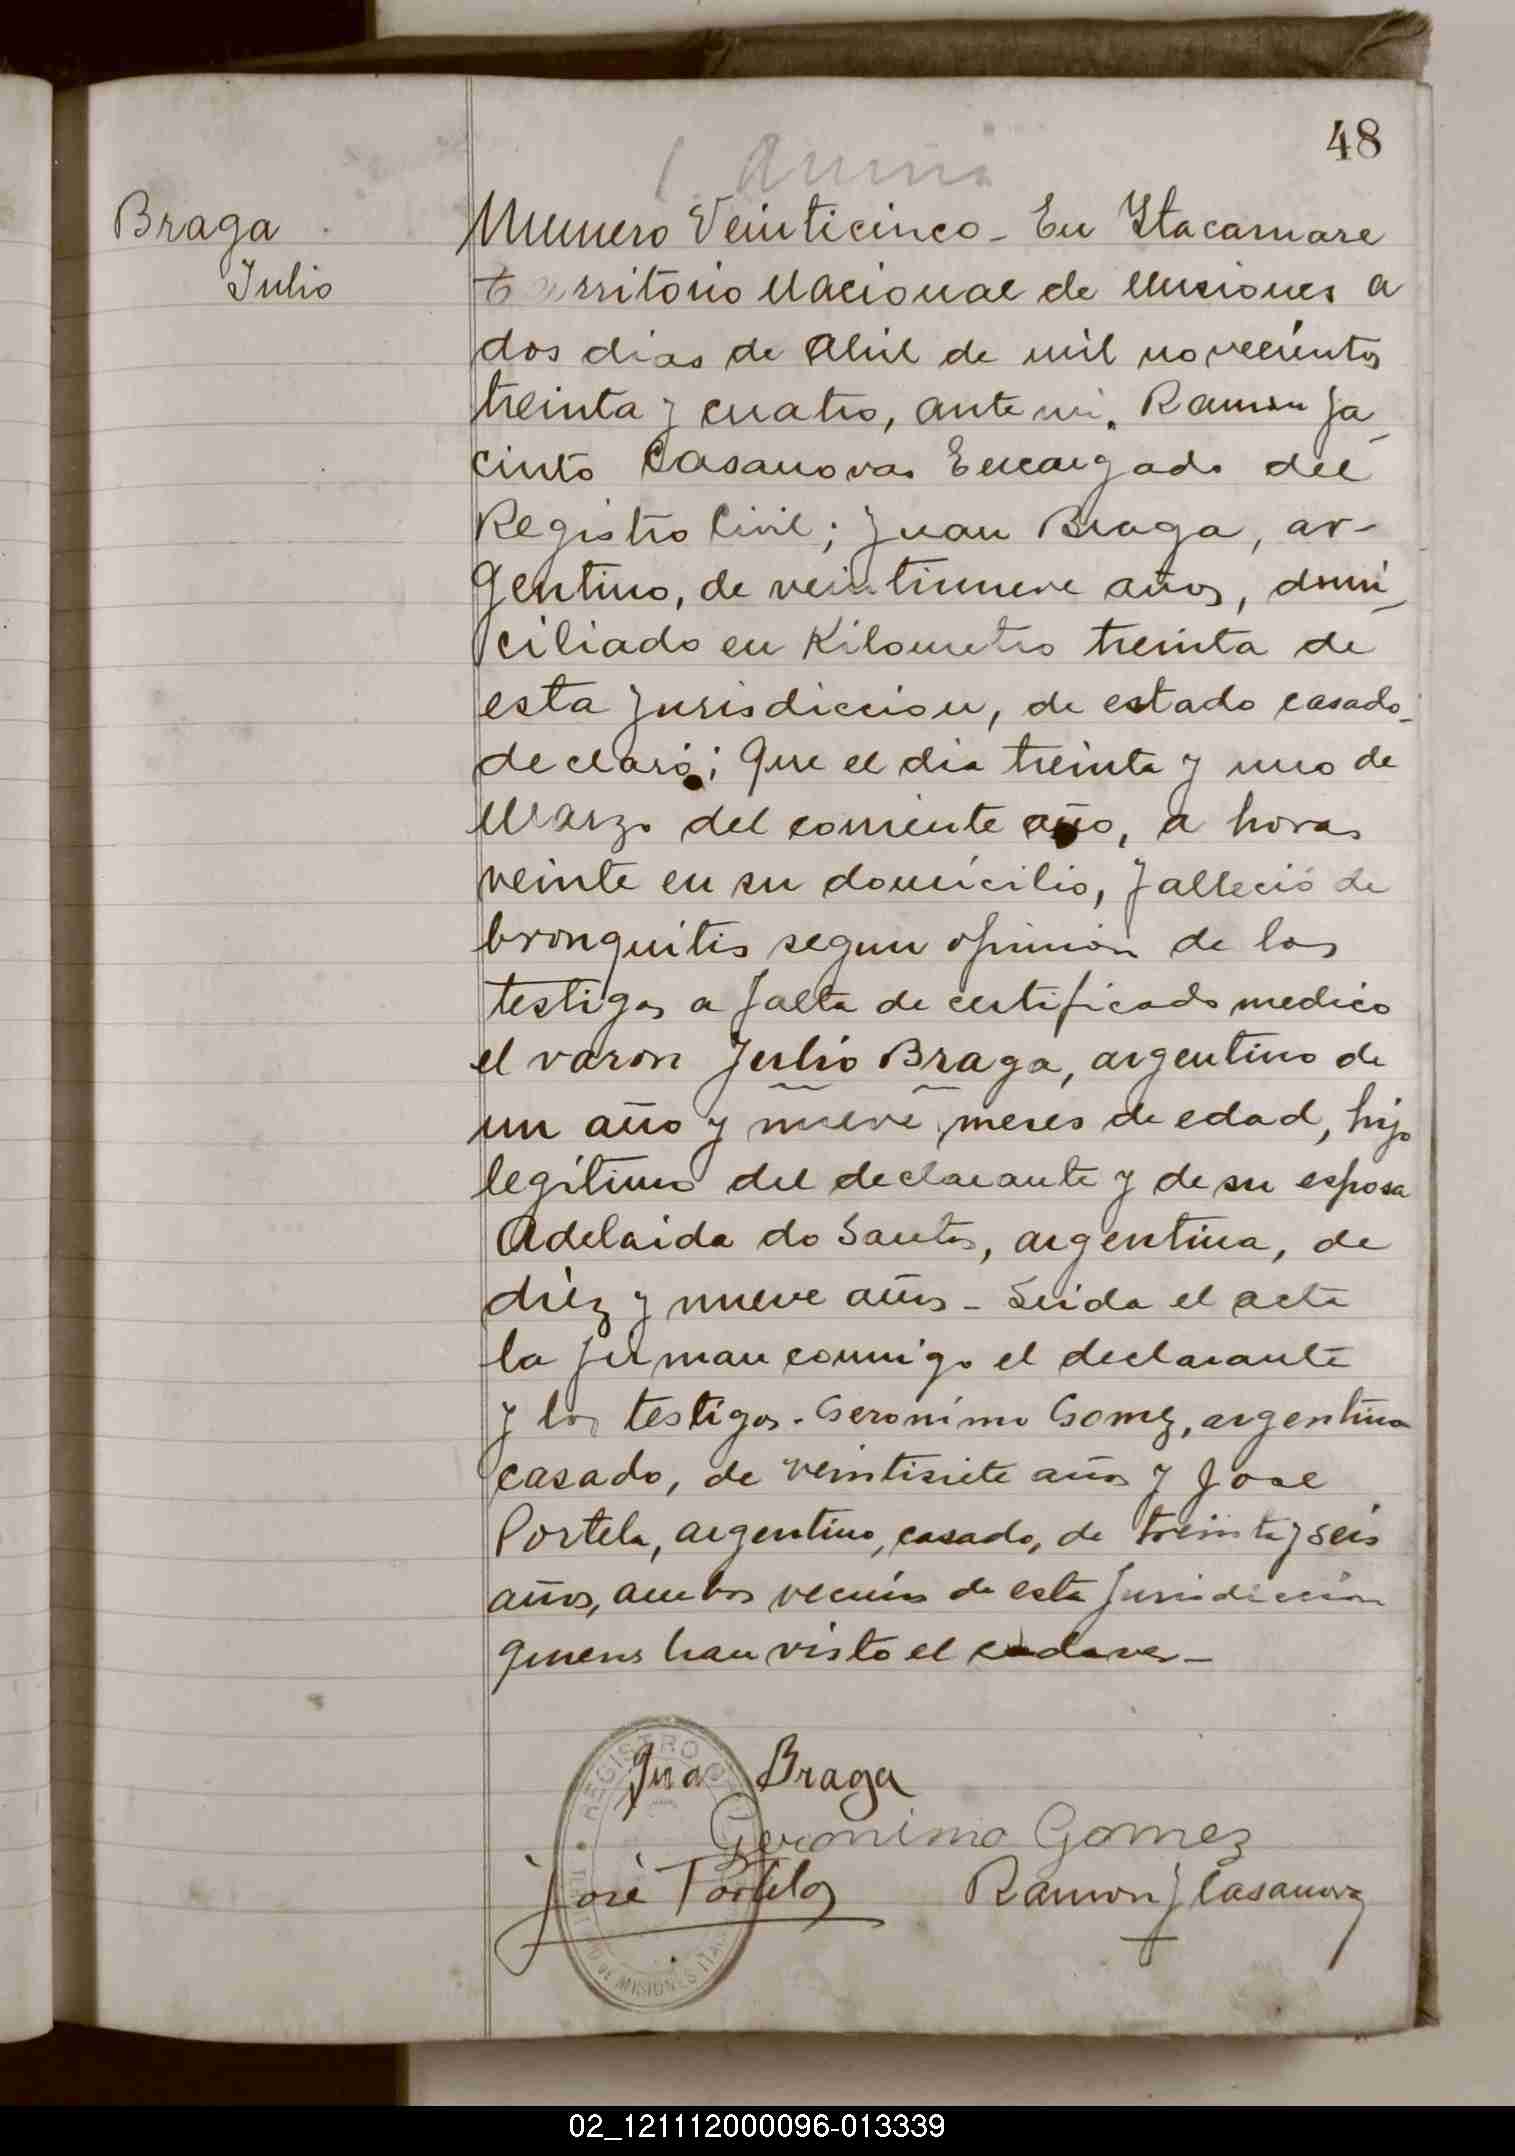 48
Braga
Julio
Numero Veinticinco - En Itacaruare
territorio Nacional de Misiones a
dos dias de Abril de mil novecientos
treinta y cuatro, ante mi. Ramon Ja-
cinto Casanovas Encargado del
Registro Civil; Juan Braga, ar-
gentino, de veintinueve años, domi-
ciliado en Kilometro treinta de
esta jurisdiccion, de estado casado-
declaró; Que el dia treinta y uno de
Marzo del corriente año, a horas
veinte en su domicilio, falleció de
bronquitis segun opinion de los
testigos a falta de certificado medico
el varon Julio Braga, argentino de
un año y nueve meses de edad, hijo
legitimo del declarante y de su esposa
Adelaida do Santos, argentina, de
diez y nueve años - Leida el acta
la firman conmigo el declarante
y los testigos. Geronimo Gomez, argentino
casado, de veintisiete años y Jose
Portela, argentino, casado, de treinta y seis
años, ambos vecinos de esta jurisdiccion
quienes han visto el cadaver -
REGISTRO
Juan Braga
Geronimo Gomez
José Portela Ramon J Casanova
DE MISIONES
02_121112000096-013339